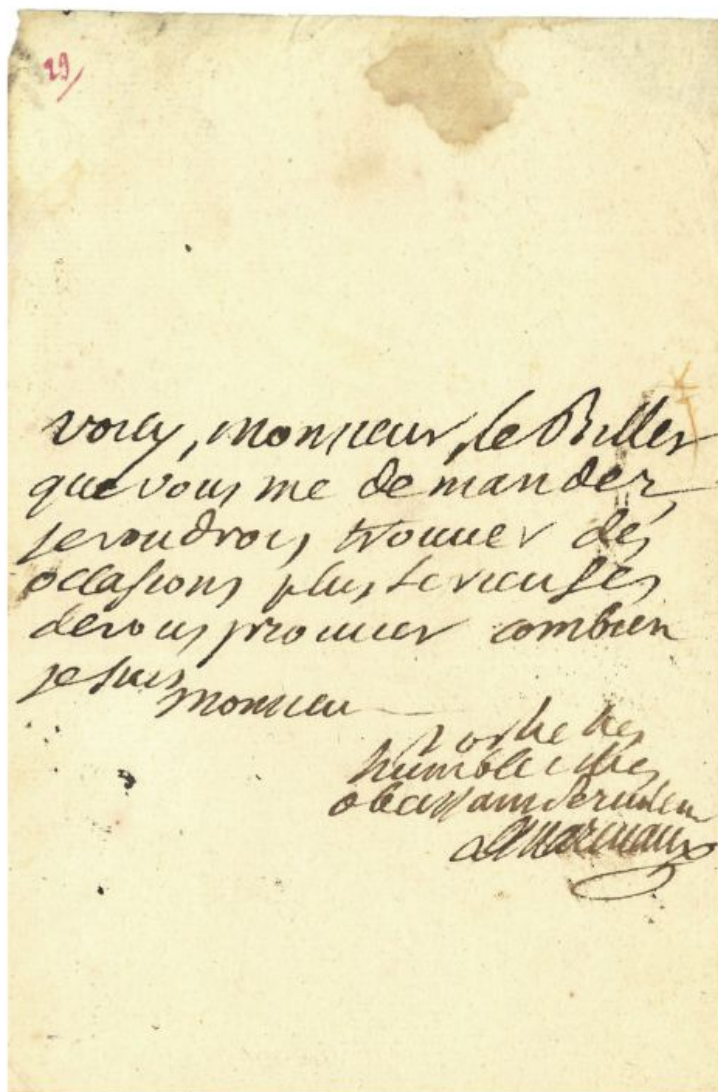 29
voicy, monsieur, le Billet
que vous me demandez,
je voudrois trouver des
occasions plus serieuses
de vous prouver combien
je suis
monsieur
votre tres
humble et tres
obeissant serviteur